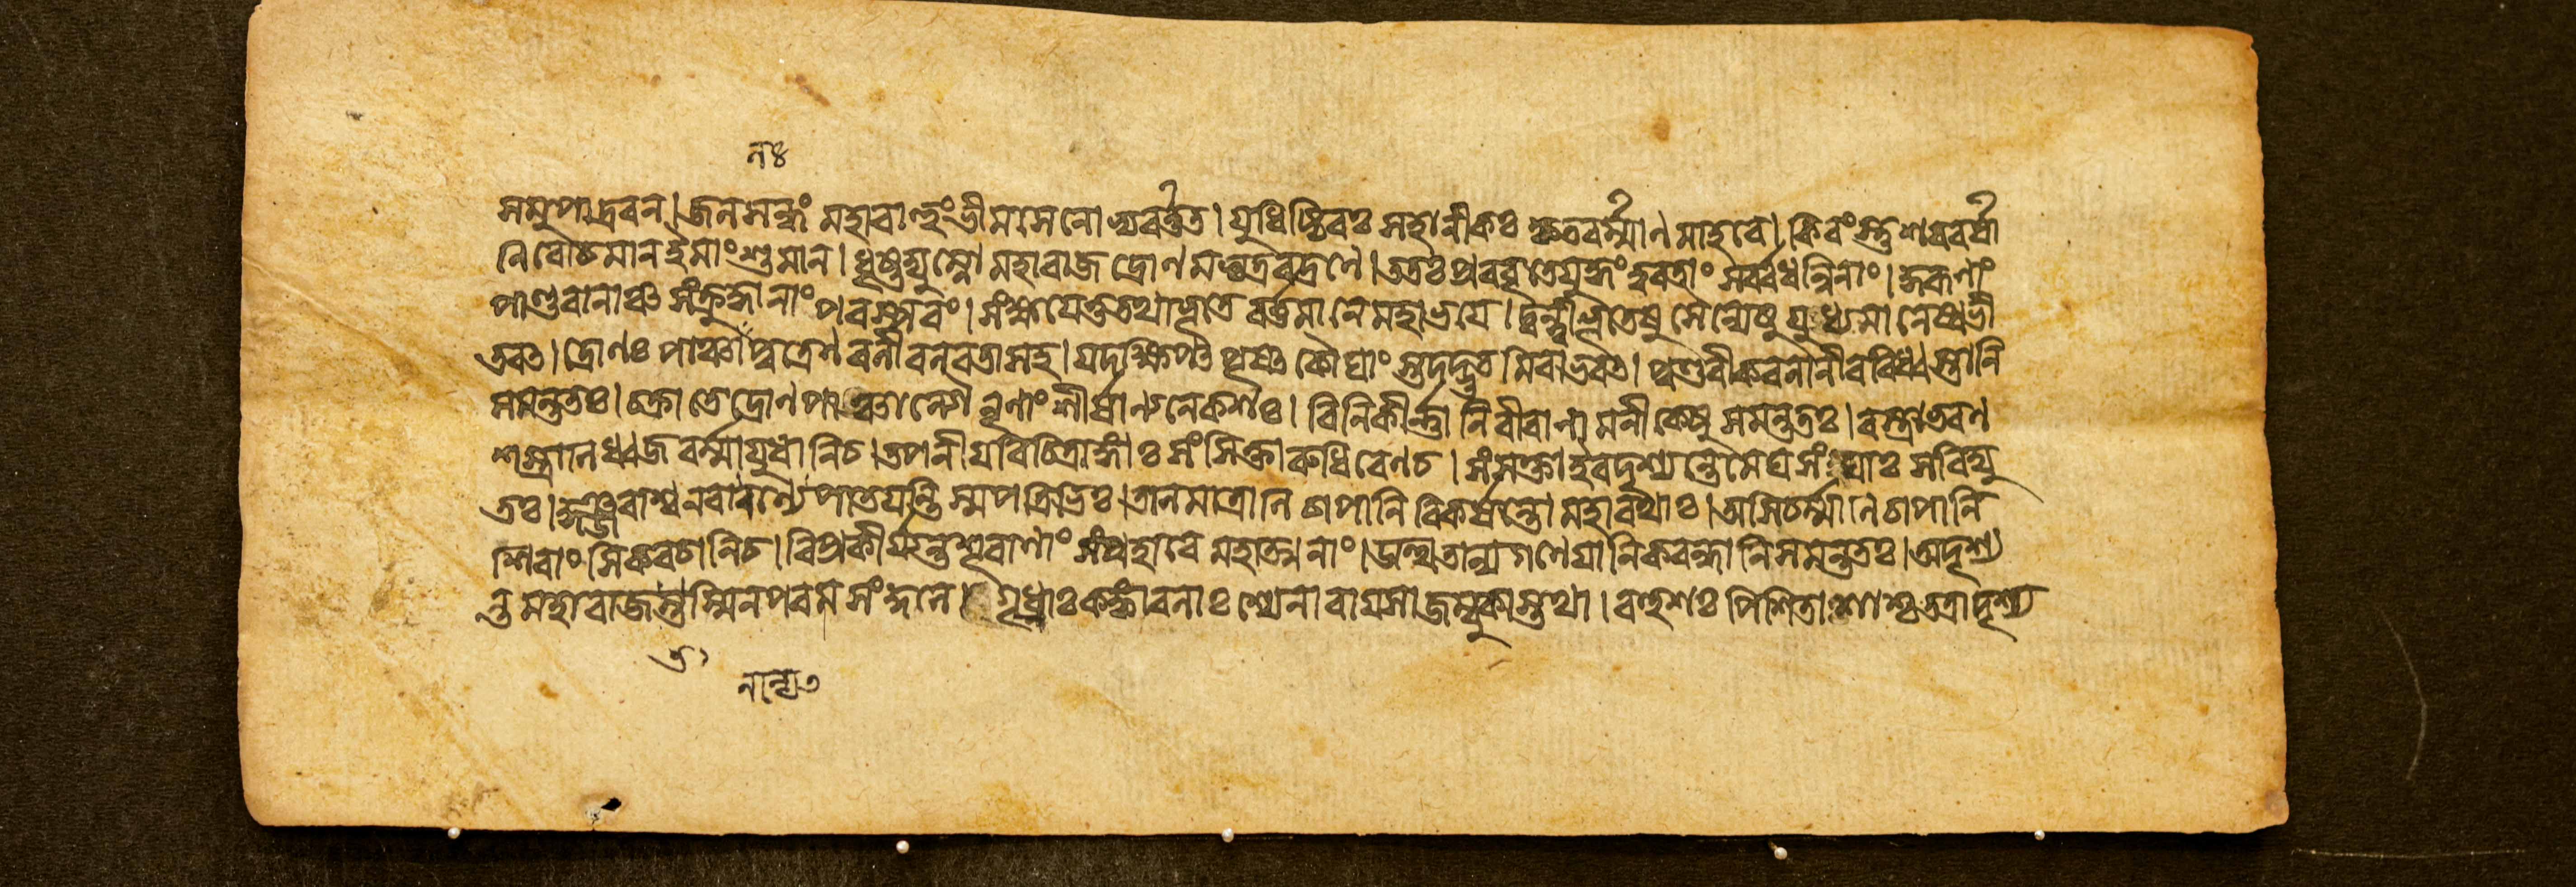 নঃ
সমুপাদ্রবন্।জলসন্ধং মহাবাহুং ভীমসেনোভ্যবর্ত্তত।যুধিষ্ঠিরঃ সহানীকঃ কৃতবর্ম্মাণমাহবে।কিরংস্তু শরবর্ষা
নি রোচমান ইবাংশুমান্।ধৃষ্টদ্যুম্নো মহারাজ দ্রোণমভ্যদ্রবদ্রণে।ততঃ প্রববৃতে যুদ্ধং ত্বরতাং সর্ব্বধন্বিনাং।কুরূণাং
পাণ্ডবানাঞ্চ সংক্রুদ্ধানাং পরস্পরং।সংক্ষয়ে তু তথাভূতে বর্ত্তমানে মহাভয়ে।দ্বন্দ্বীভূতেষু সৈন্যেষু যুধ্যমানেষ্বভী
তবৎ।দ্রোণঃ পাঞ্চালপুত্রেণ বলী বলবতা সহ।যদক্ষিপৎ পৃষৎকৌঘাংস্তদদ্ভুতমিবাভবৎ।পুণ্ডরীকবনানীব বিধ্বস্তানি
সমন্ততঃ।চক্রাতে দ্রোণপাঞ্চাল্যৌ নৃণাং শীর্ষাণ্যনেকশঃ।বিনিকীর্ণানি বীরাণামনীকেষু সমন্ততঃ।বস্ত্রাভরণ
শস্ত্রাণি ধ্বজবর্ম্মায়ুধানি চ।তপনীয়বিচিত্রাঙ্গাঃ সংসিক্তা রুধিরেণ চ।সংসক্তা ইব দৃশ্যন্তে মেঘসংঘাঃ সবিদ্যু
তঃ।কুঞ্জরাশ্বনরানন্যে পাতয়ন্তি স্ম পত্রিভিঃ।তালমাত্রাণি চাপানি বিকর্ষন্তো মহারথাঃ।অসিচর্ম্মাণি চাপানি
শিরাংসি কবচানি চ।বিপ্রকীর্য্যন্ত শূরাণাং সংপ্রহারে মহাত্মনাং।উত্থিতান্যগণেয়ানি কবন্ধানি সমন্ততঃ।অদৃশ্য
ন্ত মহারাজ তস্মিন্ পরমসংকুলে।গৃধ্রাঃ কঙ্কা বলাঃ শ্যেনা বায়সা জম্বুকাস্তথা।বহুশঃ পিশিতাশাশ্চ তত্রাদৃশ্য